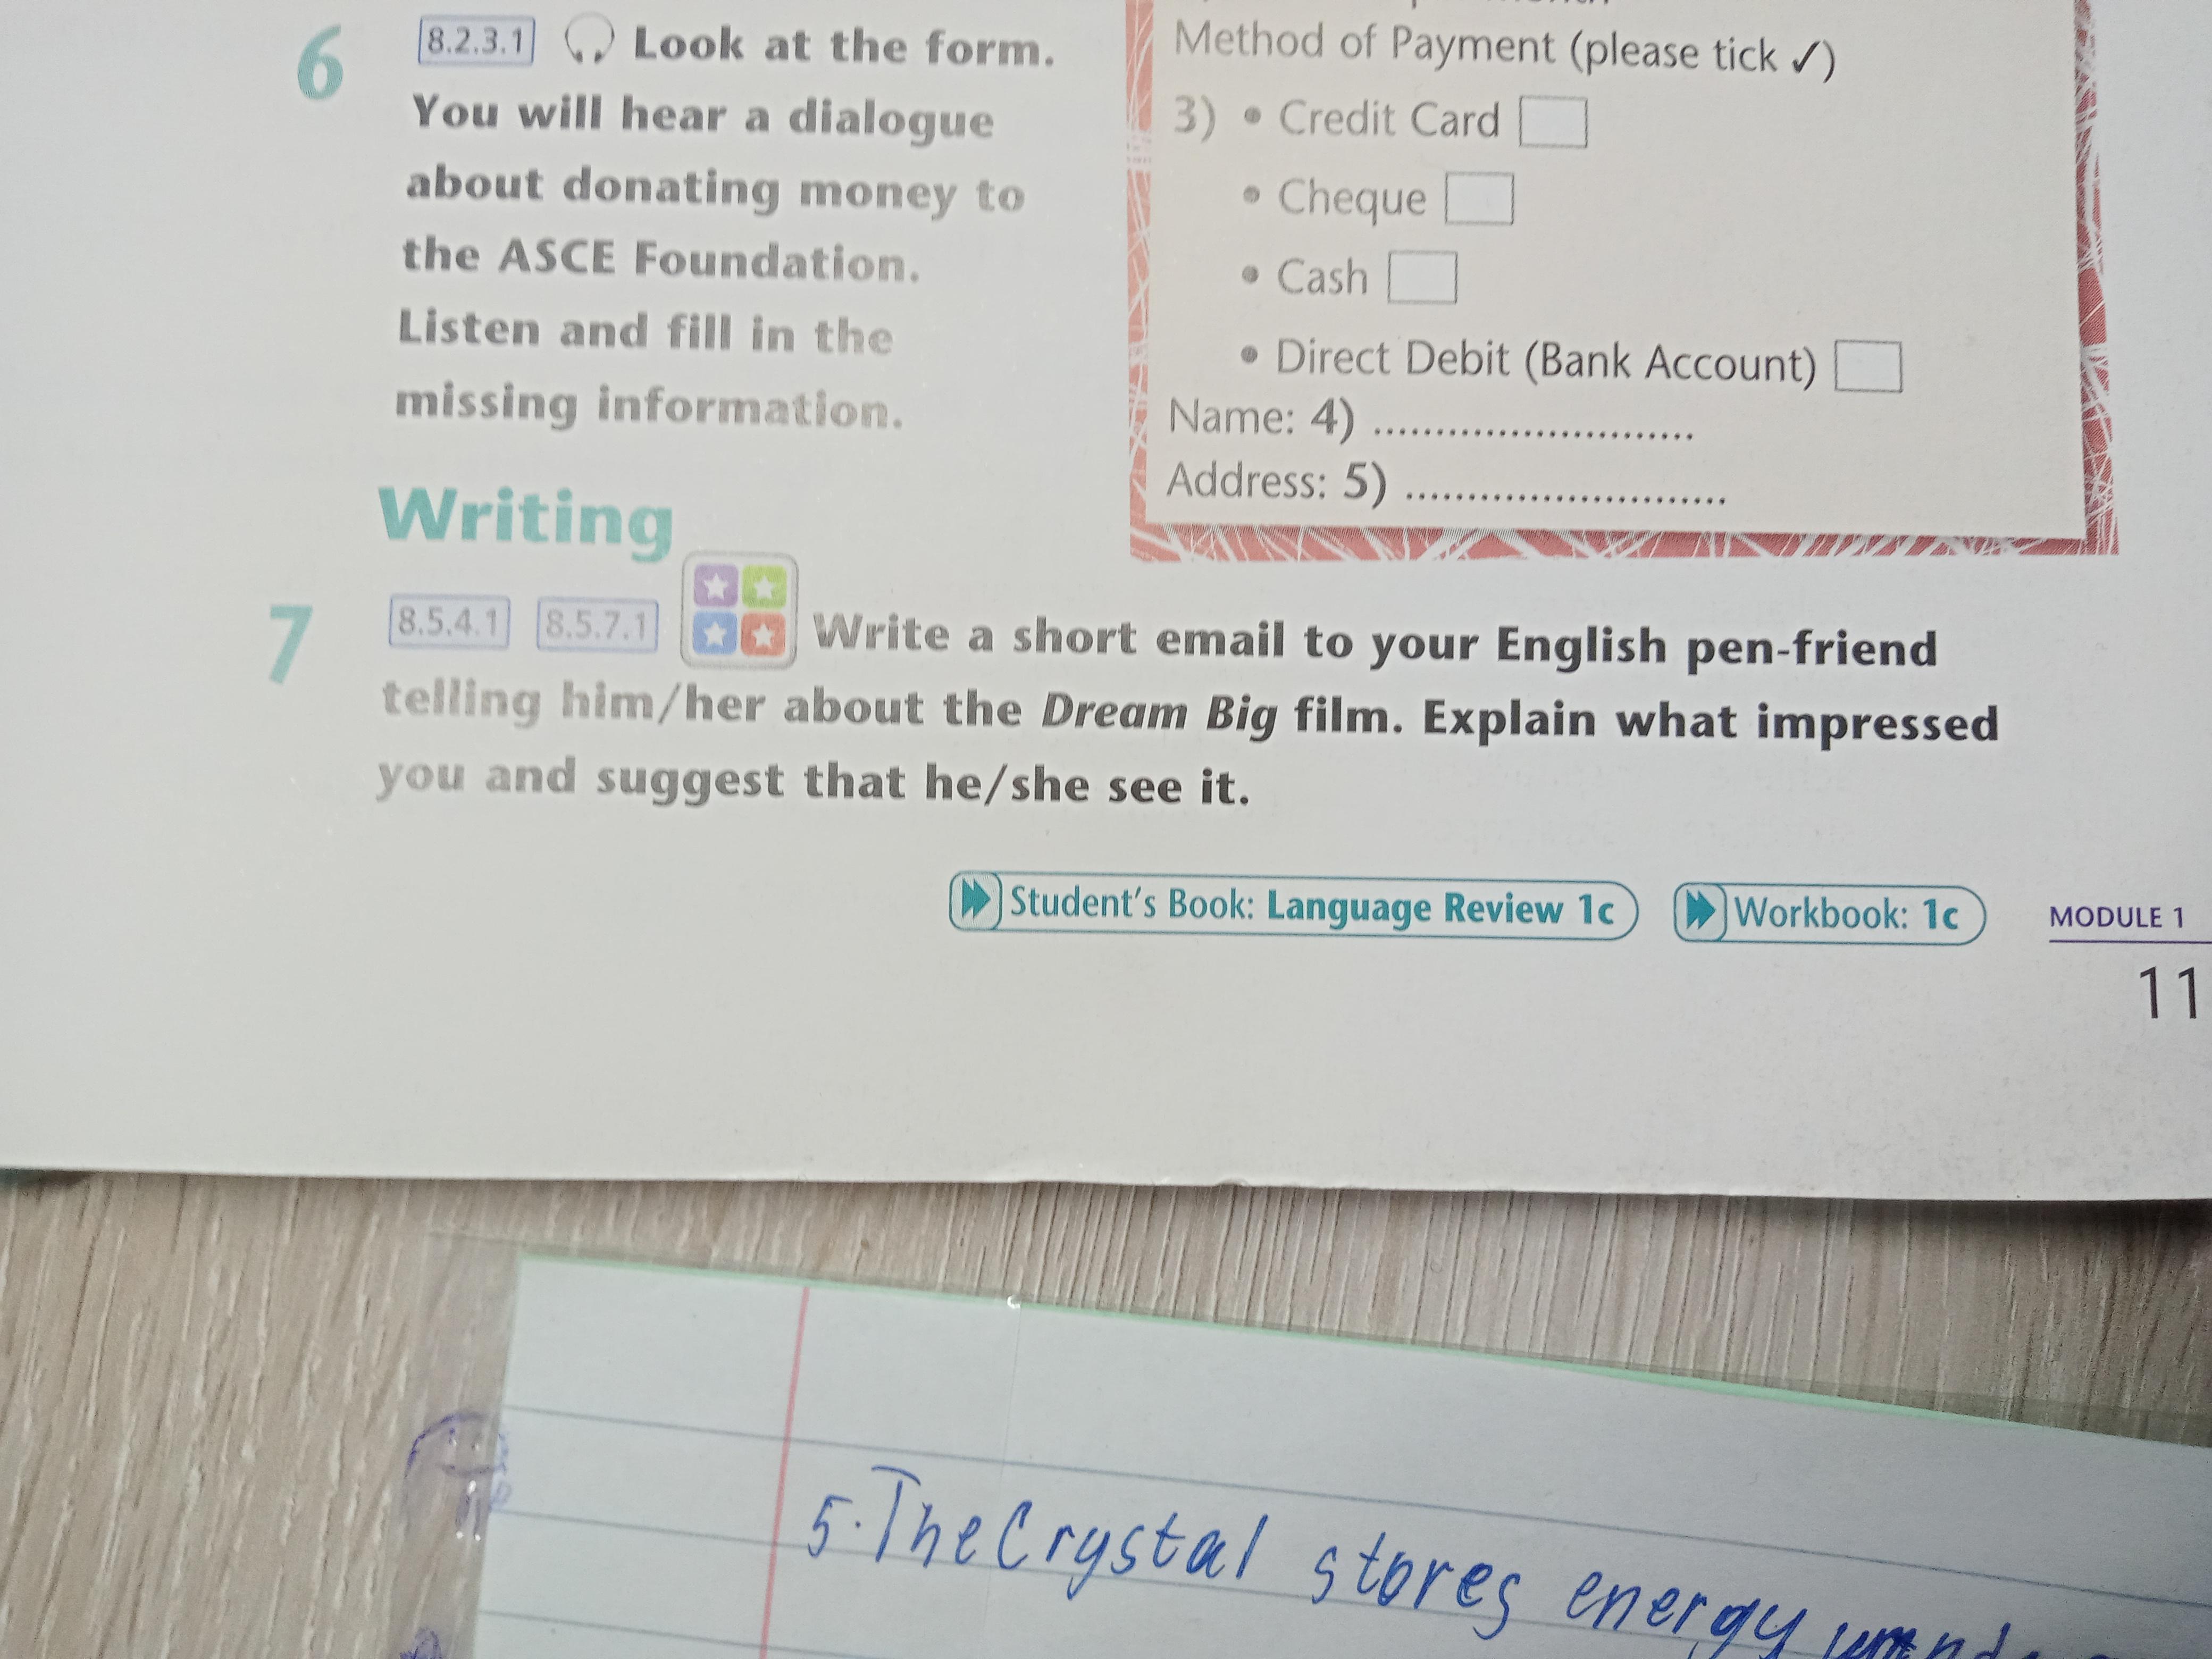 6 8.2.3.1 Look at the form.
You will hear a dialogue
about donating money to
the ASCE Foundation.
Listen and fill in the
missing information.
Method of Payment (please tick ✓)
3) • Credit Card
• Cheque
• Cash
• Direct Debit (Bank Account)
Name: 4) ..........................
Address: 5) ..........................
Writing
7 8.5.4.1 8.5.7.1 Write a short email to your English pen-friend
telling him/her about the Dream Big film. Explain what impressed
you and suggest that he/she see it.
Student's Book: Language Review 1c Workbook: 1c MODULE 1
11
5. The Crystal stores energy